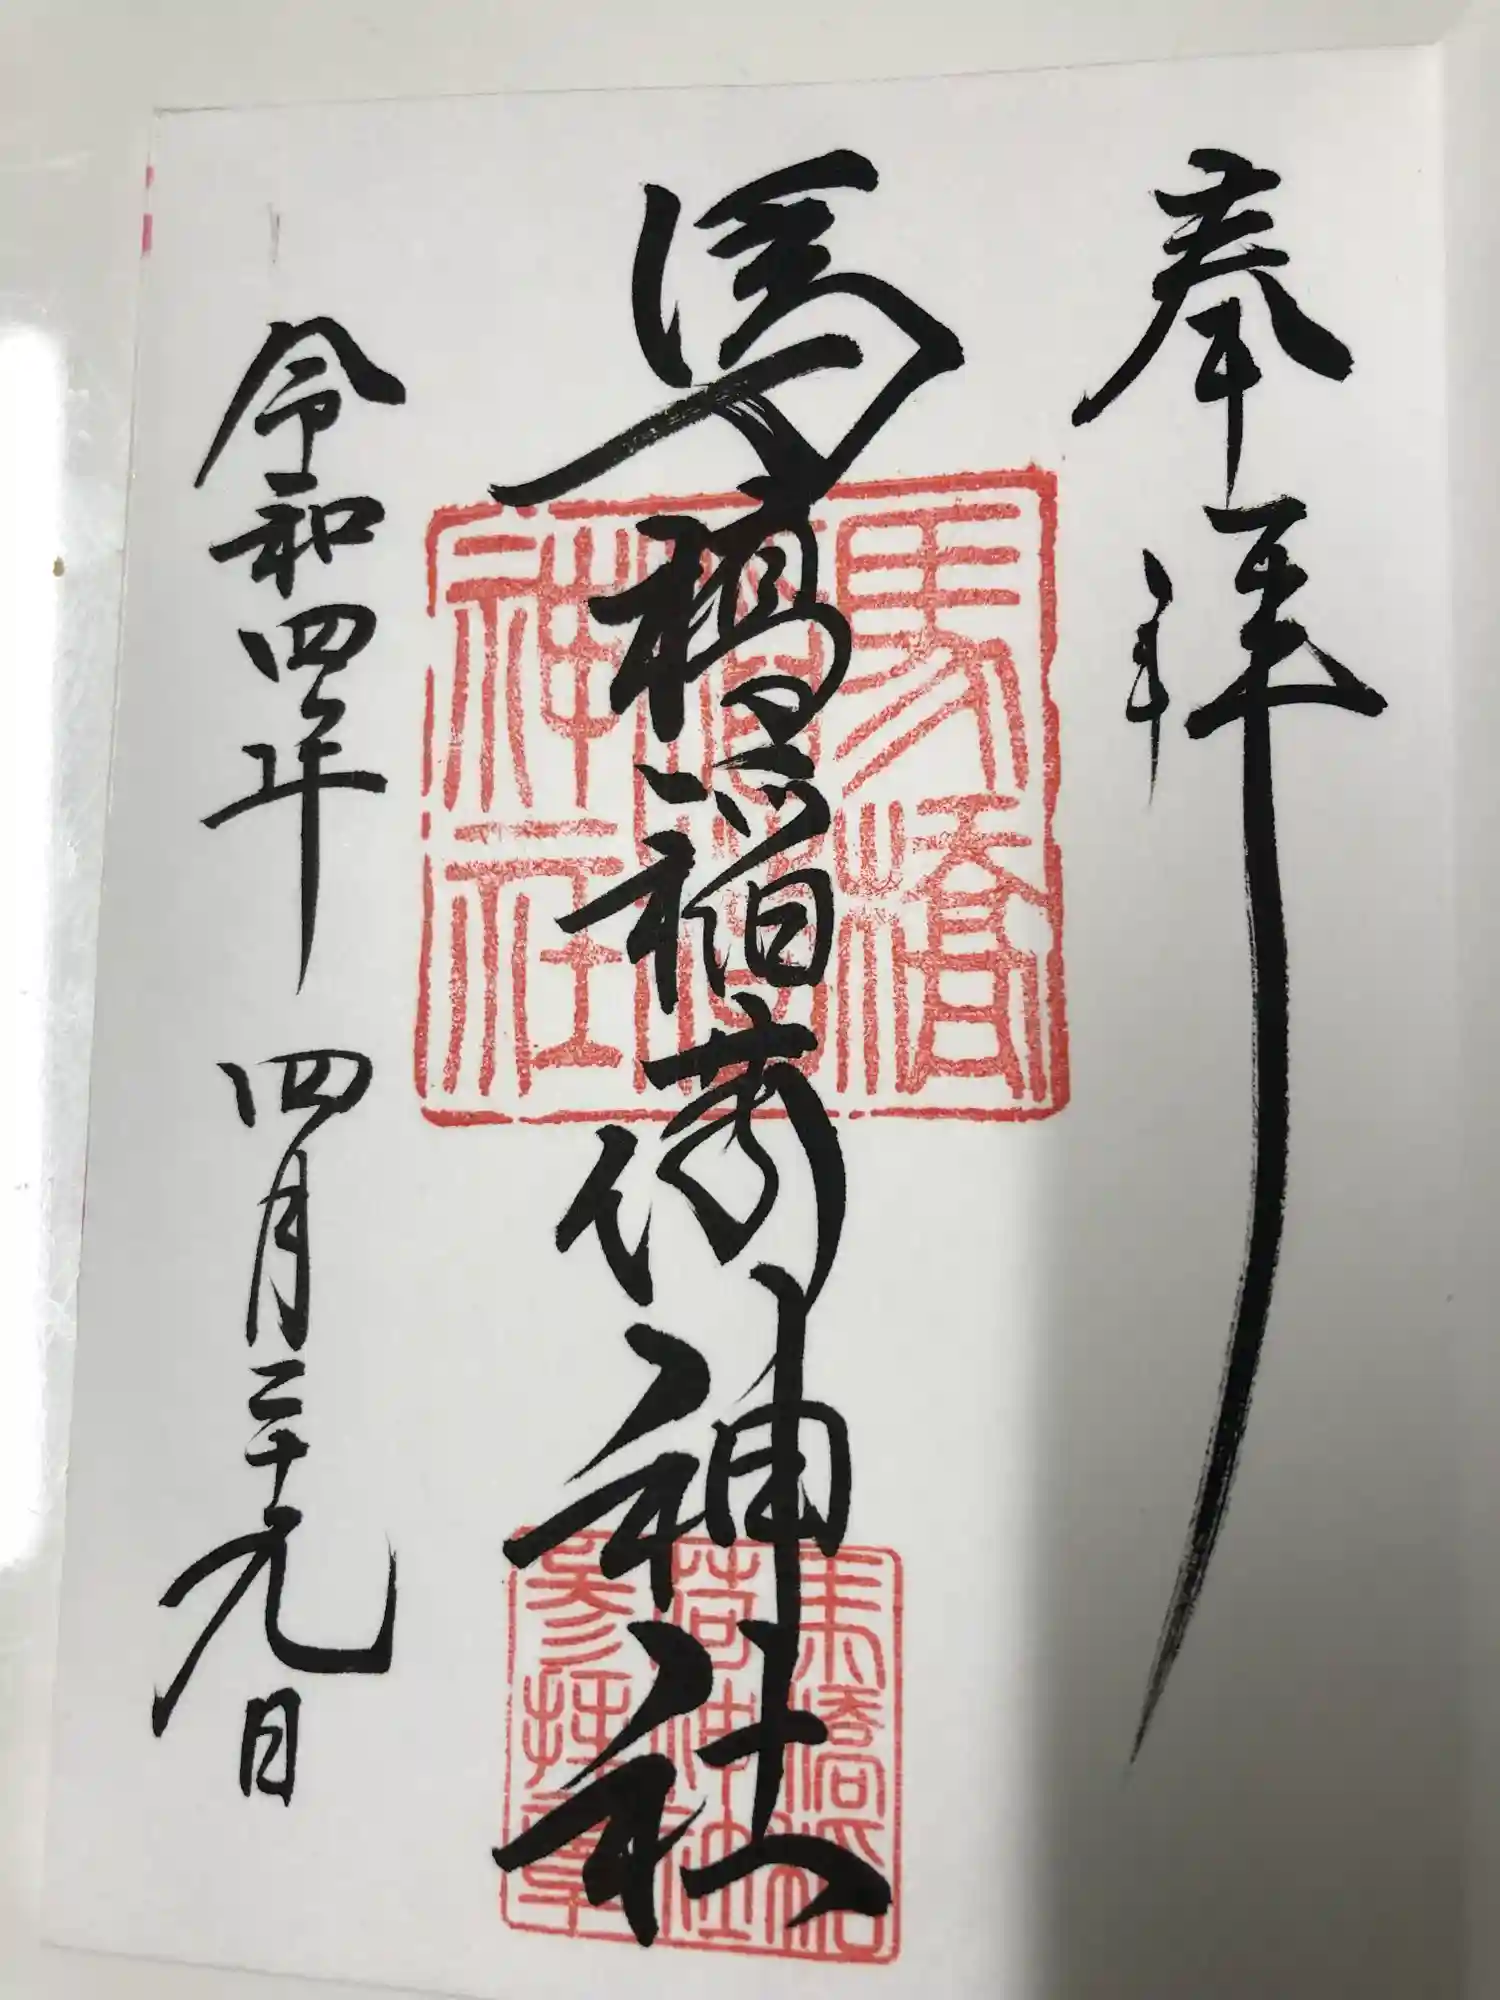 奉拝
馬橋稲荷神社
令和四年 四月二十九日
馬橋稲荷神社
馬橋稲荷神社参拝章